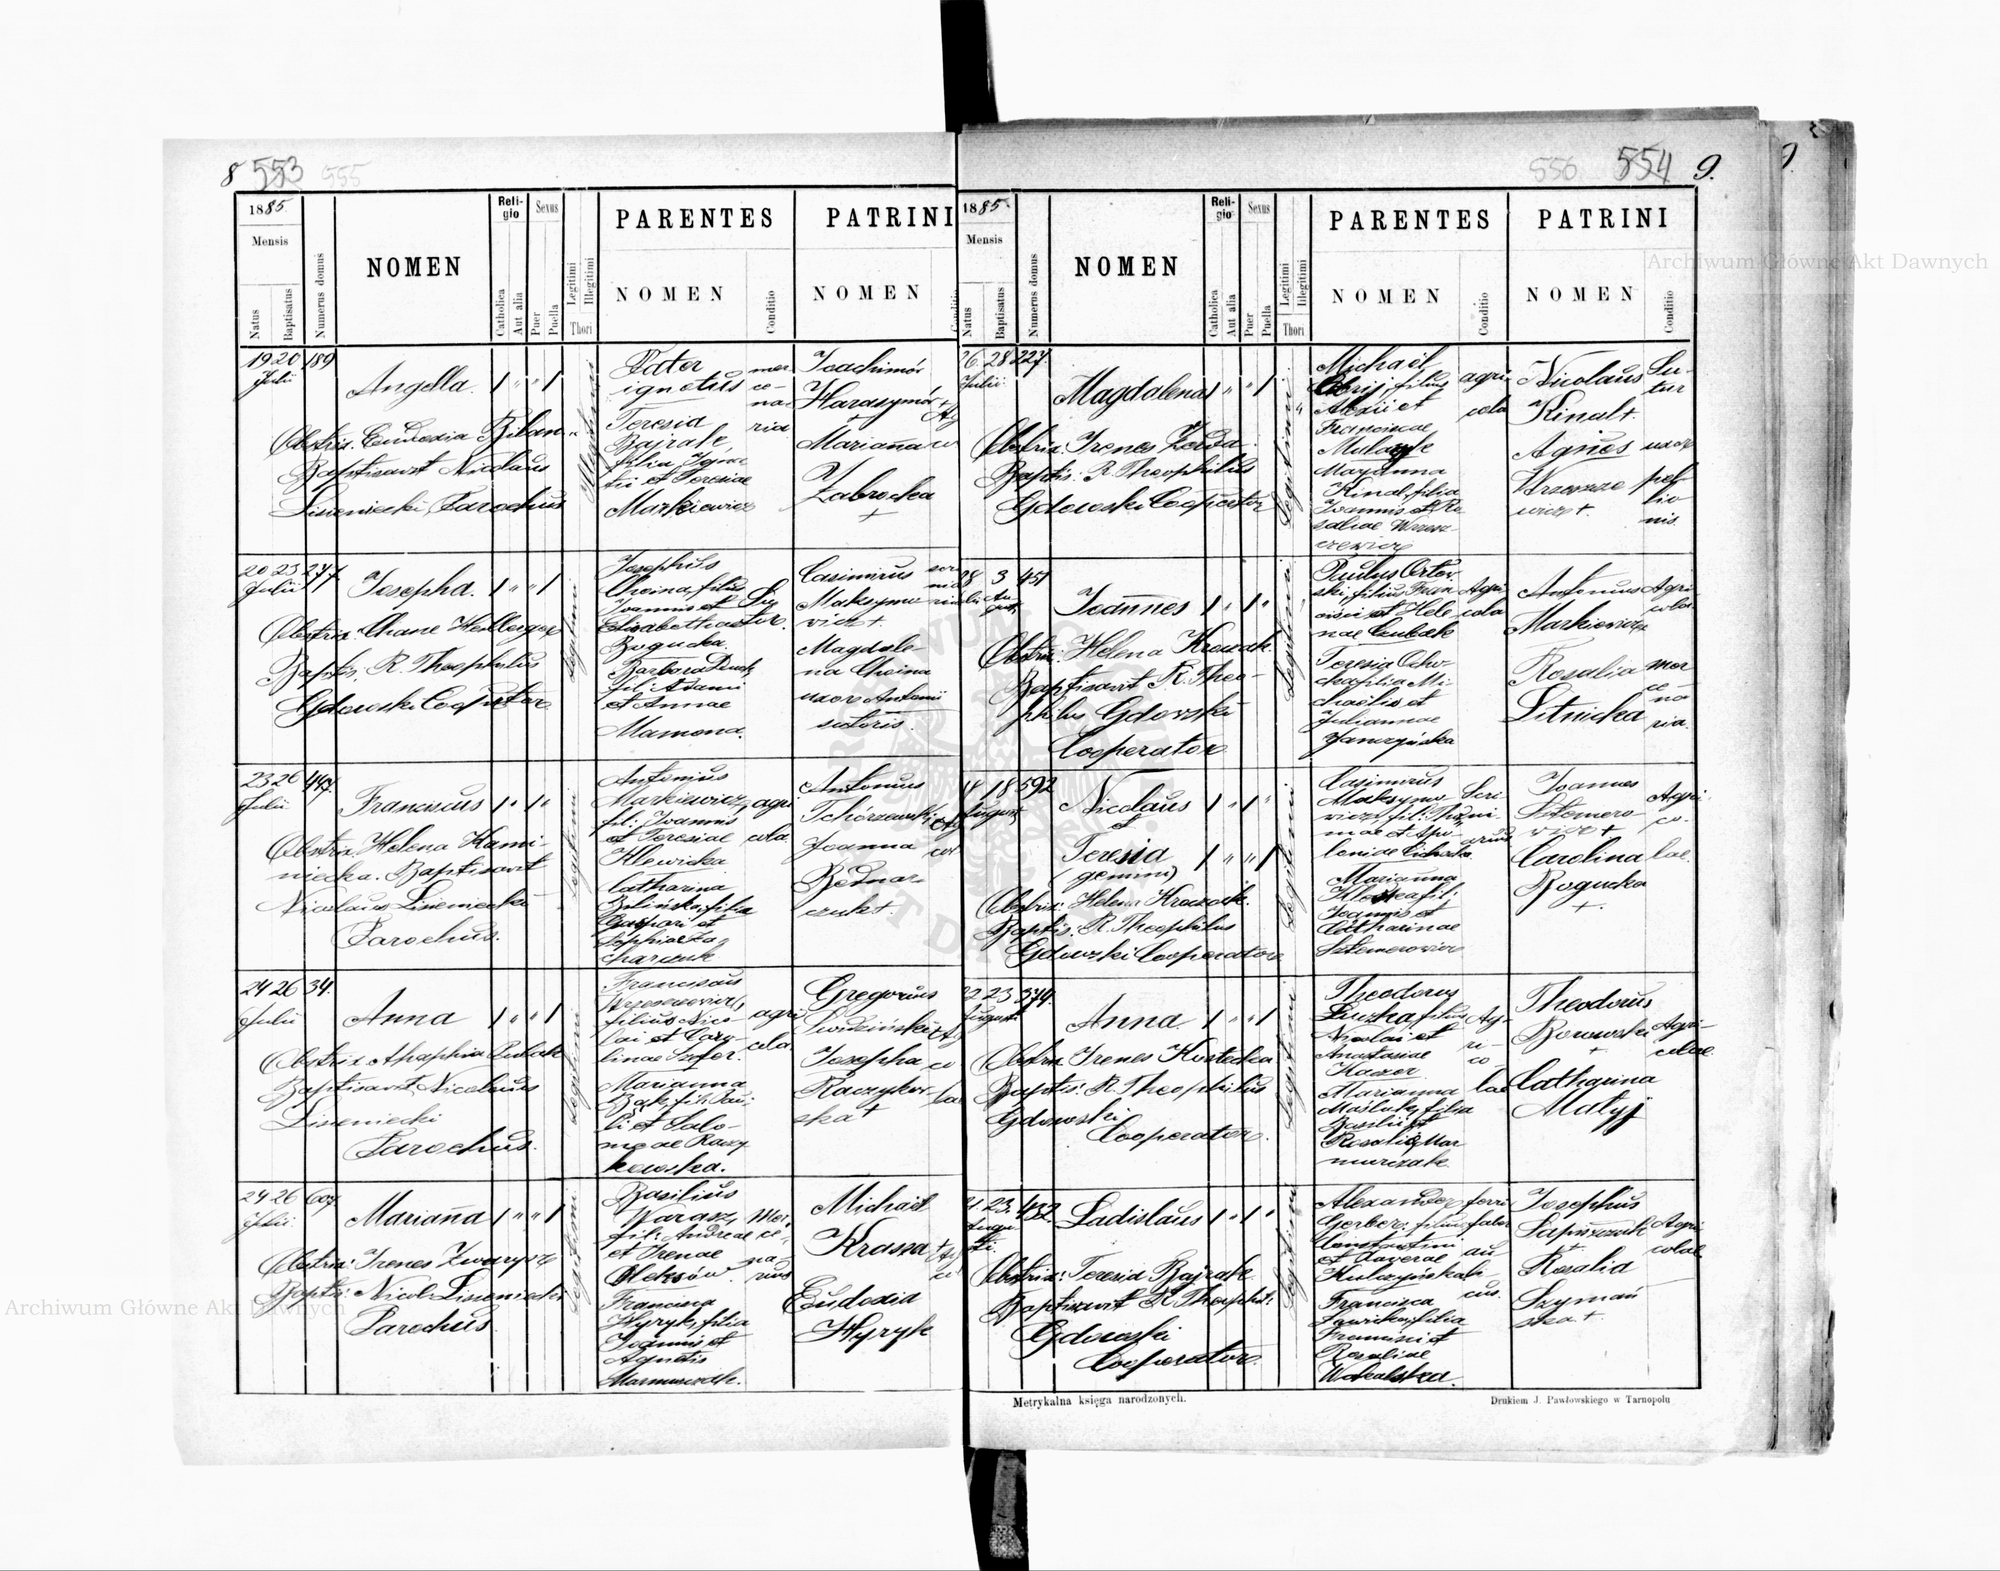 8 553 555
1885.
Mensis
Natus
Baptisatus
Numerus domus
NOMEN
Reli-
gio
Catholica
Aut alia
Sexus
Puer
Puella
Legitimi
Illegitimi
Thori
PARENTES
NOMEN
Conditio
PATRINI
NOMEN
19 20 189
Julii
Angella
Obstrix Eudoxia
Baptisavit Nicolaus
Lisieniecki, Parochus
Pater
ignotus
Teresia
Bajrak,
filia Igna-
tii et Teresiae
Markiewicz
mer
ce-
na-
ria
Joachimus
Harasymów
Marianna
Zabrocka
+
20 23 247
Julii
Josepha.
Obstrix: Chane
Baptis. R. Theophilus
Gdowski Cooperator
Legitimi
Josephus
Choina, filius
Joannis et
Elisabetha
Bogucka.
Barbara
fil: Adami
et Annae
Mamona.
Casimirus
Maksymo-
wicz +.
Magdale-
na Choina
uxor Antonii
sutoris.
23 26 447
Julii
Franciscus
Obstrix Helena Kami-
niecka. Baptisavit
Nicolaus Lisieniecki
Parochus.
Legitimi
Antonius
Markiewicz,
fil: Joannis
et Teresiae
Klewicka
Catharina
Zielińska, filia
Gaspari et
Sophiae Za-
charczuk
agri
cola.
Antonius
Tchórzewski
Joanna
Bednar-
czuk +.
24 26 34.
Julii
Anna
Obstrix Ahaphia
Baptisavit Nicolaus
Lisieniecki
Parochus.
Legitimi
Franciscus
Wrzeszczowicz,
filius Nico-
lai et Caro-
linae
Marianna
Bąk, fil: Pau-
li et Salo-
meae Raczy-
kowska.
agri
cola.
Gregorius
Josepha
Raczykow-
ska +
24 26 607
Julii.
Marianna
Obstrix: Irenes Zwarycz
Baptis: Nicol: Lisieniecki
Parochus
Legitimi
Basilius
Warasz,
fil: Andreae
et Irenae
Oleksów
Francisca
Hyryk, filia
Joannis et
Agnetis
Marmurczak.
mer
ce-
na-
rius
Michael
Krassa
Eudoxia
Hyryk
556 554 9.
1885.
Mensis
Natus
Baptisatus
Numerus domus
NOMEN
Reli-
gio
Catholica
Aut alia
Sexus
Puer
Puella
Legitimi
Illegitimi
Thori
PARENTES
NOMEN
Conditio
PATRINI
NOMEN
Conditio
26 28 227
Julii.
Magdalena
Obstrix: Irenes
Baptis: R. Theophilus
Gdowski Cooperator
Legitimi
Michaël
filius
Alexii et
Franciscae
Marianna
Kinal, filia
Joannis et Ro-
saliae Wrzesz-
czewicz
agri
cola
Nicolaus
Kinal +
Agnes
Wrzeszcze
wicz +.
Su-
tur
uxor
pel
lio
nis.
28 3 451
Joannes
Obstrix: Helena Krowak
Baptisavit R. Theo-
philus Gdowski
Cooperator
Legitimi
Paulus Ortow-
ski, filius Fran-
cisci et Hele-
nae
Teresia Ocho-
cka, filia Mi-
chaëlis et
Juliannae
Janczyńska
Agri
cola
Antonius
Markiewicz
Rosalia
Litnicka
Agri-
cola.
mer
ce-
na-
ria.
14 18 592
August
Nicolaus
&
Teresia
(gemini)
Obstrix: Helena Krawczuk.
Baptis: R. Theophilus
Gdowski Cooperator
Legitimi
Casimirus
Maksymo-
wicz, fil:
Marianna
fil:
Joannis et
Catharinae
Sztemerowicz
Joannes
Sztemero-
wicz +
Carolina
Bogucka
+.
Agri-
co-
lae.
22 23 379.
August.
Anna.
Obstrix Irenes Kostecka
Baptis: R. Theophilus
Gdowski
Cooperator.
Legitimi
Theodorus
filius
Nicolai et
Anastasiae
Kaczor
Marianna
filia
Basilii et
Rosaliae Mar-
murczak
Ag-
ri-
co-
lae
Theodorus
Borowski
+
Catharina
Matyj
Agri-
colae.
21. 23. 432
Augu-
sti.
Ladislaus
Obstrix: Teresia Bajrak
Baptisavit R. Theophil:
Gdowski
Cooperator.
Legitimi
Alexander
Gerber, filius
Constantini
et Xaverae
Kulczyńska
Francisca
Sawicka, filia
Francisci et
Rosaliae
Wakalska.
ferri
faber
Josephus
Rosalia
Szymań
ska +.
Agri
colae
Metrykalna księga narodzonych.
Drukiem J. Pawłowskiego w Tarnopolu
Archiwum Główne Akt Dawnych
Archiwum Główne Akt Dawnych